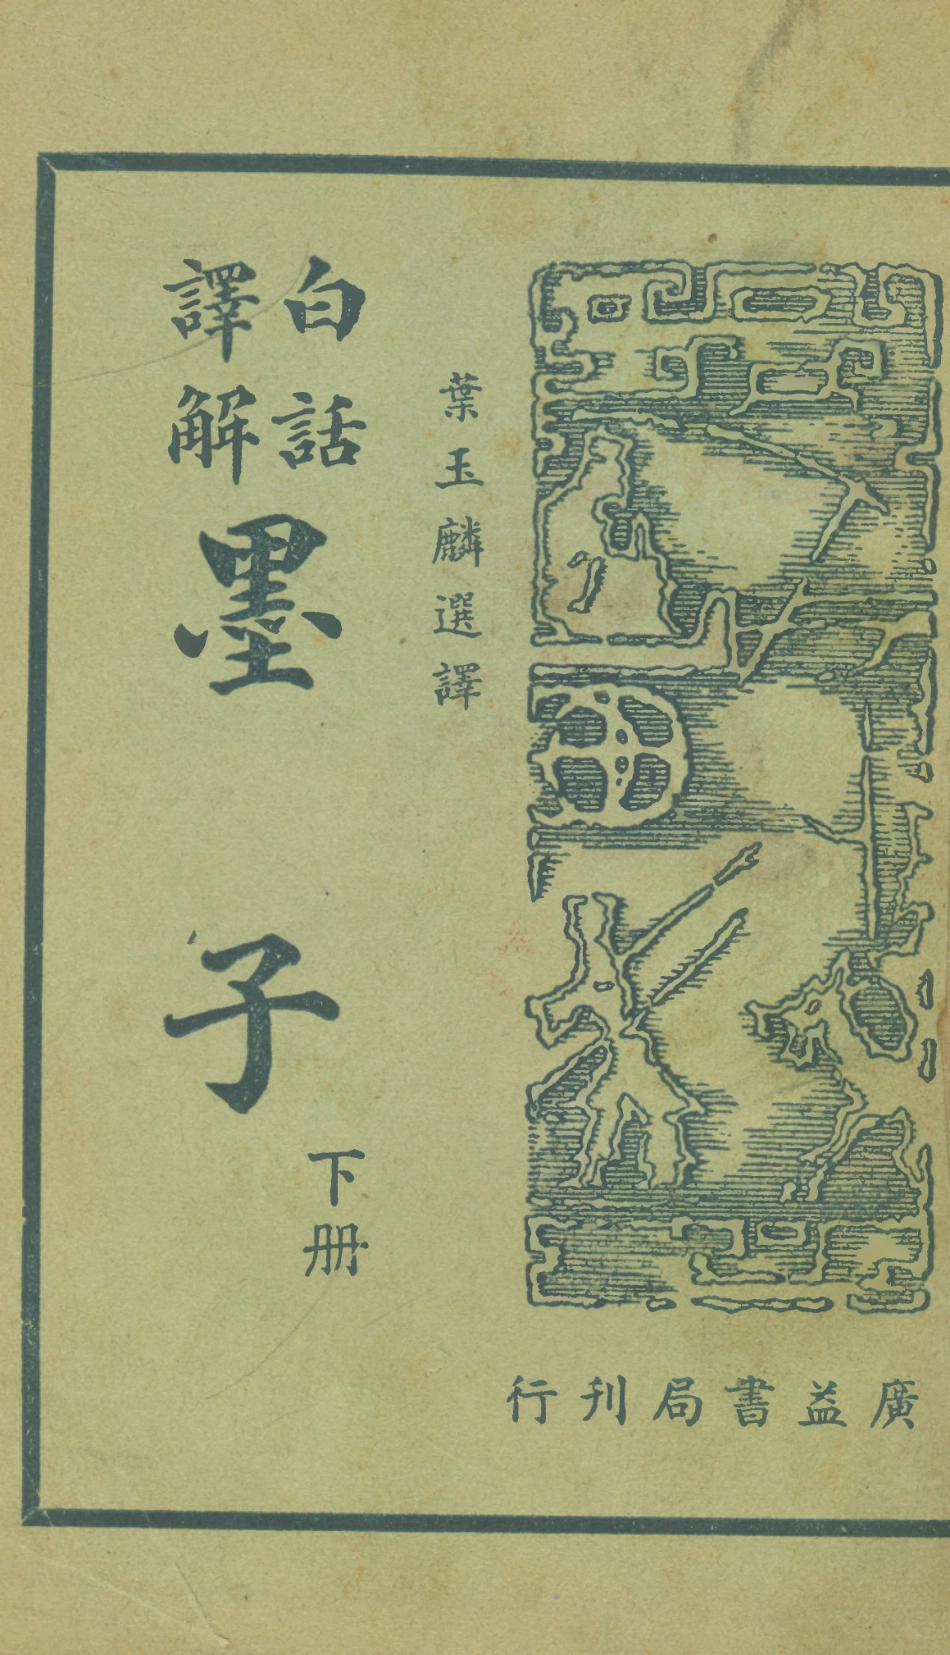 葉玉麟選譯
白話
譯解
墨子
下册
廣益書局刊行